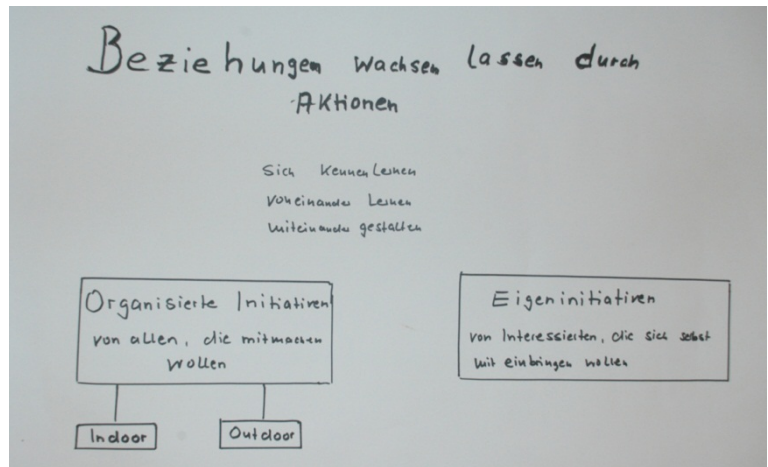 Beziehungen wachsen lassen durch
Aktionen
Sich kennenlernen
voneinander Lernen
miteinander gestalten
Organisierte Initiativen
von allen, die mitmachen
wollen
Indoor
Outdoor
Eigeninitiativen
von Interessierten, die sich selbst
mit einbringen wollen